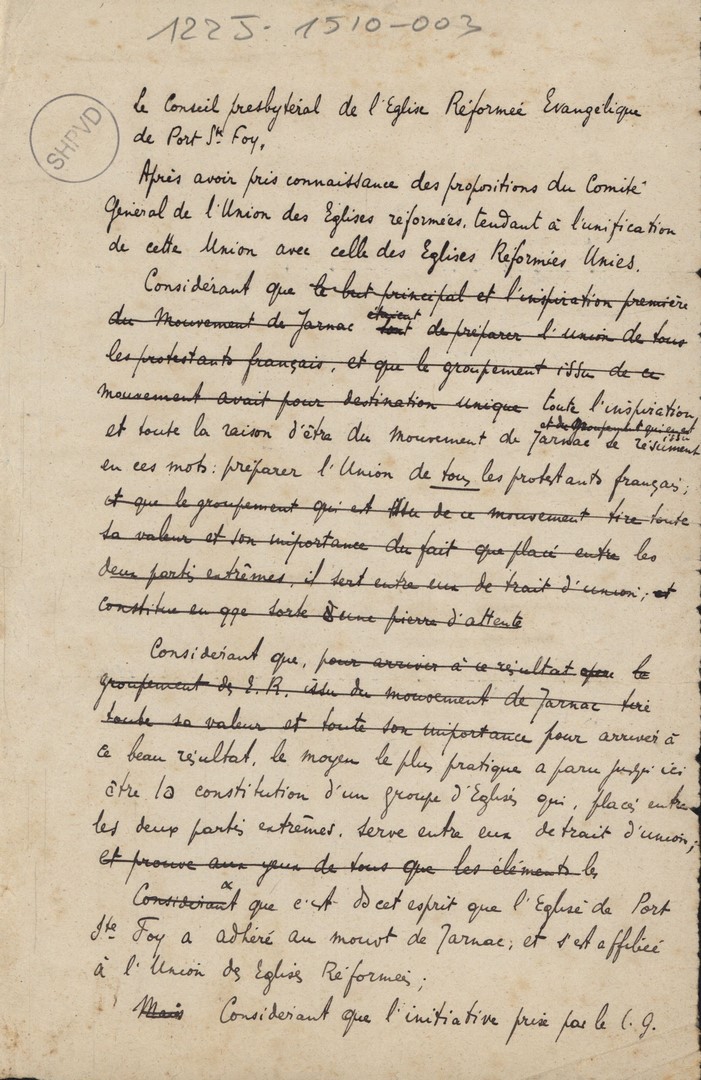 122J-1510-003
SHPVD
Le Conseil presbytéral de l'Eglise Réformée Evangélique
de Port Ste Foy,
Après avoir pris connaissance des propositions du Comité
Général de l'Union des Eglises réformées, tendant à l'unification
de cette Union avec celle des Eglises Réformées Unies.
Considérant que le but principal et l'inspiration première
étaient
du Mouvement de Jarnac de préparer l'union de tous
les protestants français, et que le groupement issu de ce
mouvement avait pour destination unique toute l'inspiration
et du groupement qui en est issu
et toute la raison d'être du mouvement de Jarnac se résument
en ces mots: préparer l'Union de tous les protestants français;
et que le groupement qui est issu de ce mouvement tire toute
sa valeur et son importance du fait que placé entre les
deux partis extrêmes, il sert entre eux de trait d'union; et
constitue en qqe sorte d'une pierre d'attente
Considérant que, pour arriver à ce résultat le
groupement des E.R. issu du mouvement de Jarnac tire
toute sa valeur et toute son importance pour arriver à
ce beau résultat, le moyen le plus pratique a paru jusqu'ici
être la constitution d'un groupe d'Eglises qui, placés entre
les deux partis extrêmes, serve entre eux de trait d'union;
et prouve aux yeux de tous que les éléments les
Considérant que c'est ds cet esprit que l'Eglise de Port
Ste Foy a adhéré au mouvt de Jarnac; et s'est affiliée
à l'Union des Eglises Réformées;
Mais Considérant que l'initiative prise par le C.G.